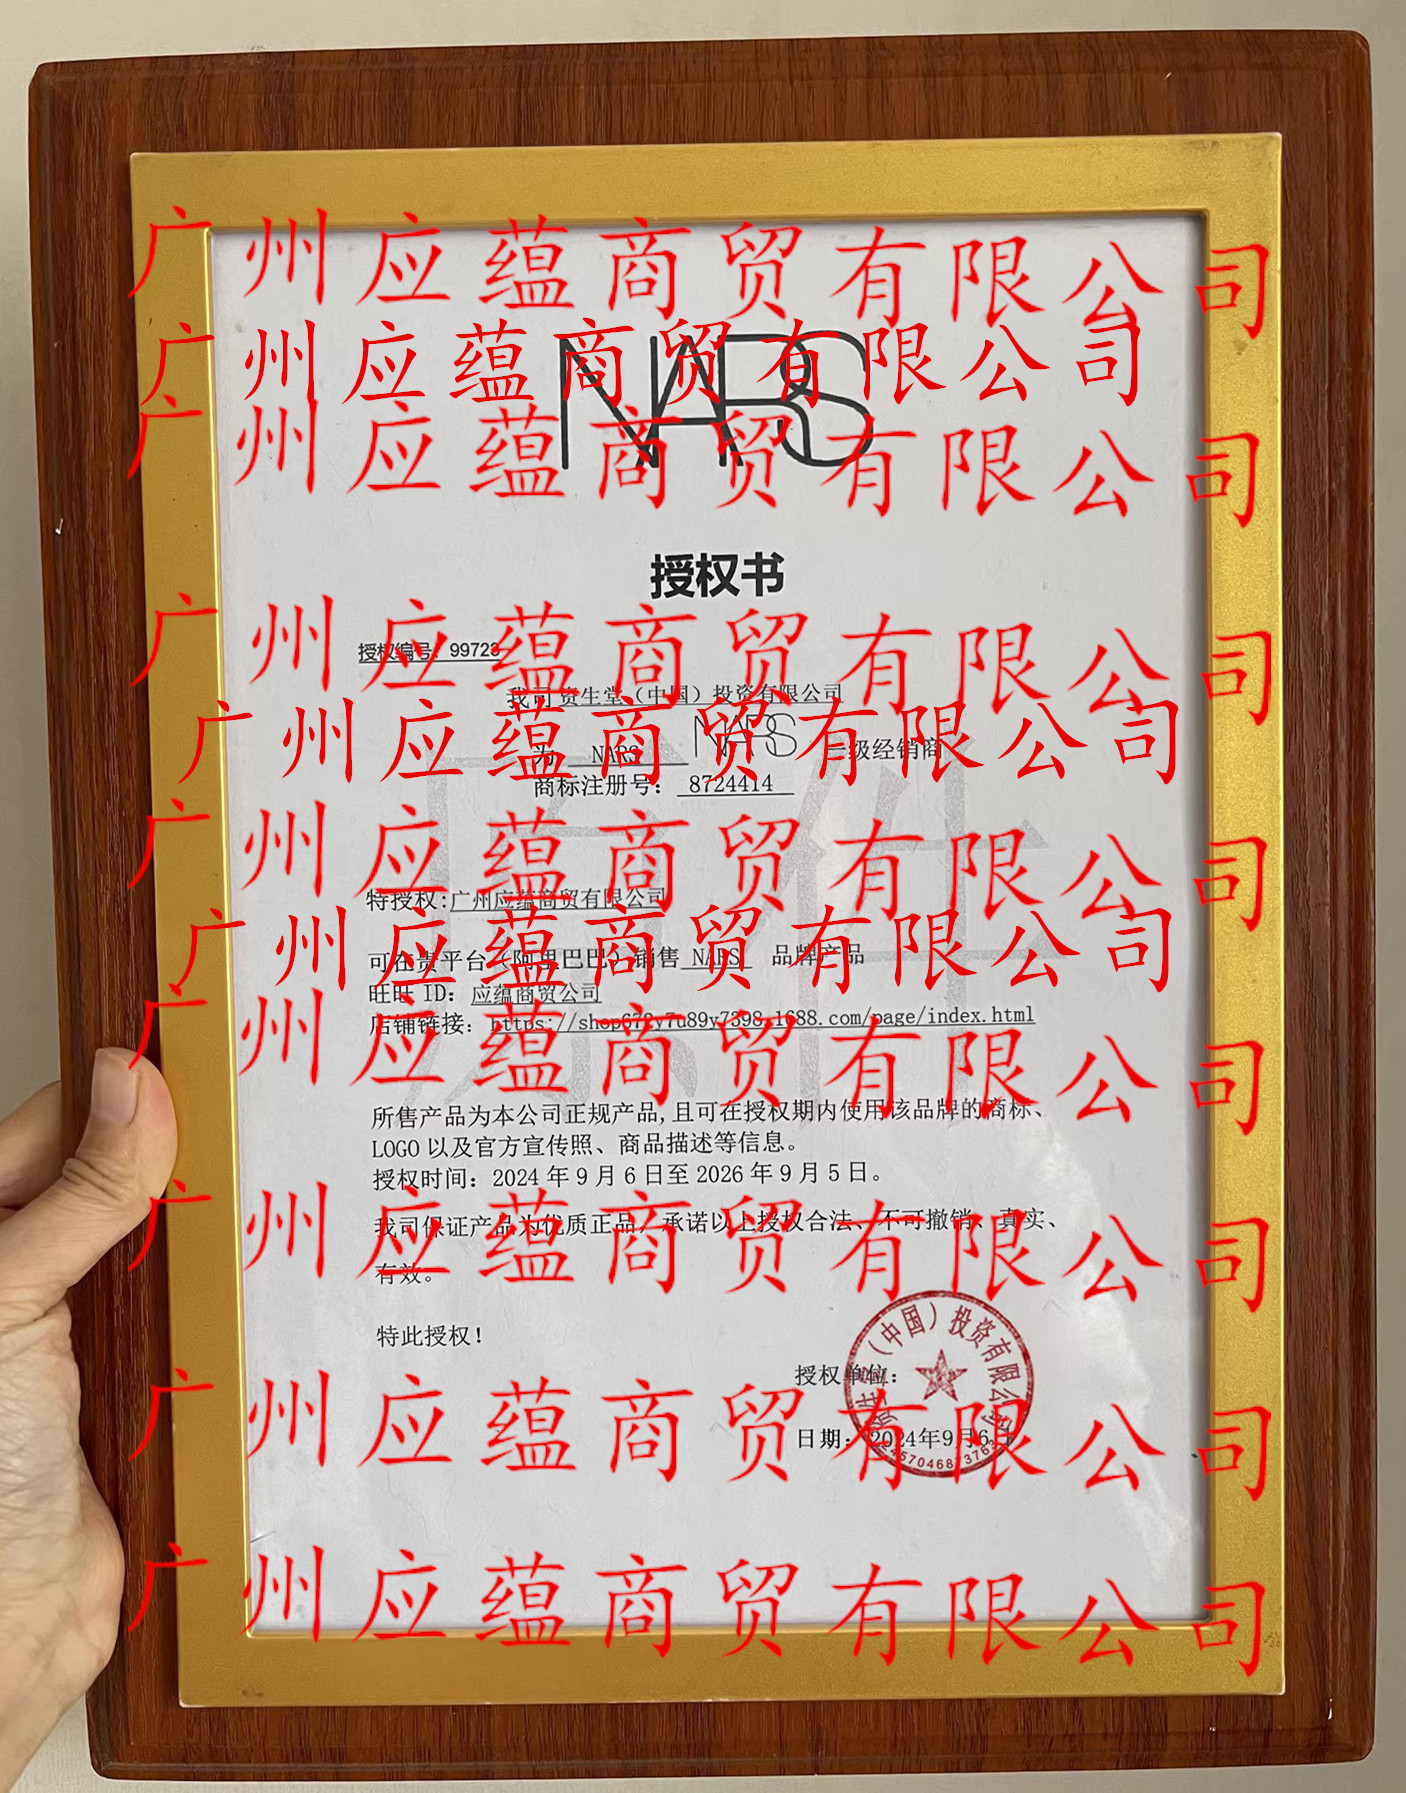 广州应蕴商贸有限公司
NARS
广州应蕴商贸有限公司
广州应蕴商贸有限公司
授权书
授权编号：99723
广州应蕴商贸有限公司
我司资生堂（中国）投资有限公司
为 NARS NARS 级经销商
广州应蕴商贸有限公司
商标注册号：8724414
原件
广州应蕴商贸有限公司
特授权:广州应蕴商贸有限公司
广州应蕴商贸有限公司
可在贵平台（阿里巴巴）销售 NARS 品牌产品
旺旺 ID：应蕴商贸公司
店铺链接：https://shop679y7u89y7398.1688.com/page/index.html
广州应蕴商贸有限公司
所售产品为本公司正规产品,且可在授权期内使用该品牌的商标、
LOGO 以及官方宣传照、商品描述等信息。
授权时间：2024 年 9 月 6 日至 2026 年 9 月 5 日。
我司保证产品为优质正品，承诺以上授权合法、不可撤销、真实、
广州应蕴商贸有限公司
有效。
特此授权！
授权单位：
资生堂（中国）投资有限公司
广州应蕴商贸有限公司
日期：2024年9月6日
广州应蕴商贸有限公司